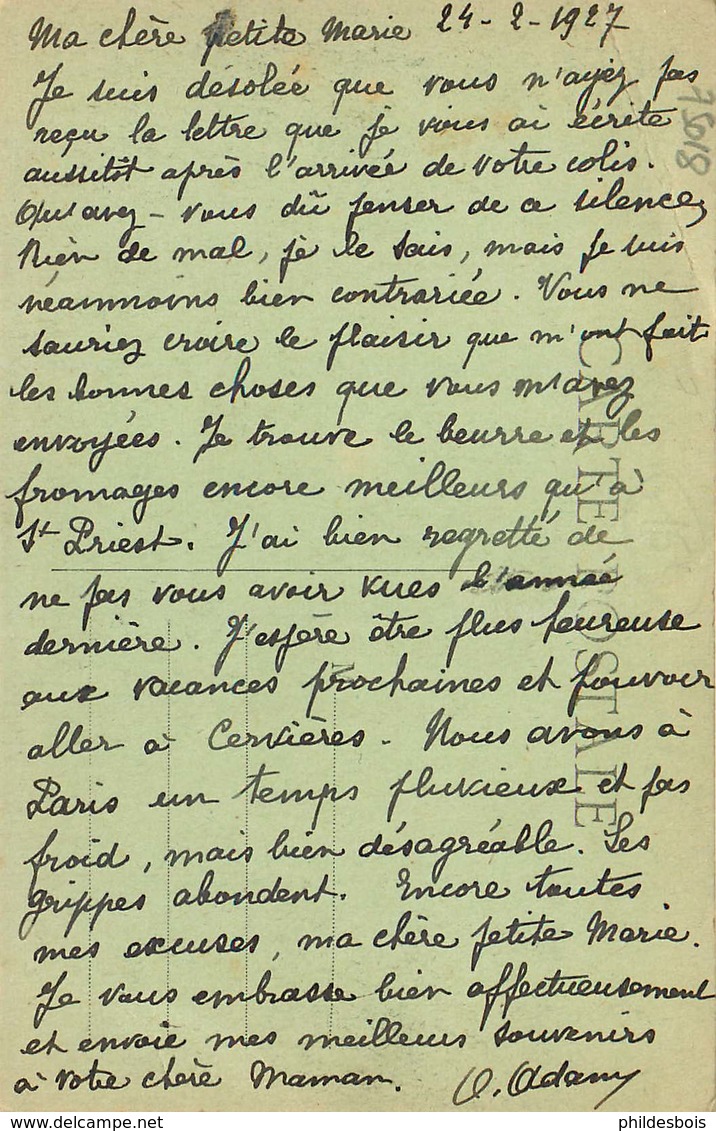 Ma chère petite Marie 24-2-1927
Je suis désolée que vous n'ayez pas
reçu la lettre que je vous ai écrite
aussitôt après l'arrivée de votre colis.
Qu'avez-vous dû penser de ce silence,
Rien de mal, je le sais, mais je suis
néammoins bien contrariée. Vous ne
sauriez croire le plaisir que m'ont fait
les bonnes choses que vous m'avez
envoyées. Je trouve le beurre et les
fromages encore meilleurs qu'à
St Priest. J'ai bien regretté de
ne pas vous avoir vues l'année
dernière. J'espère être plus heureuse
aux vacances prochaines et pouvoir
aller à Cervières. Nous avons à
Paris un temps pluvieux et pas
froid, mais bien désagréable. Les
grippes abondent. Encore toutes
mes excuses, ma chère petite Marie.
Je vous embrasse bien affectueusement
et envoie mes meilleurs souvenirs
à votre chère Maman. O. Adam
75018
CARTE POSTALE
phildesbois